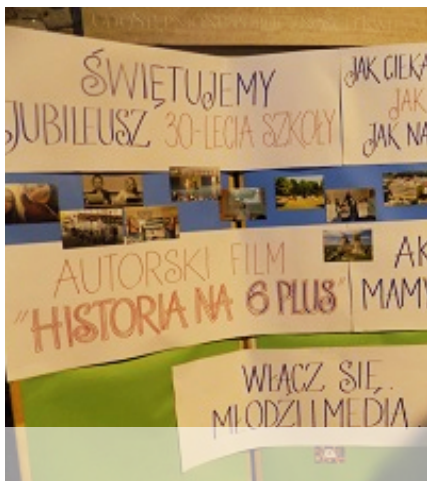 ŚWIĘTUJEMY
JUBILEUSZ 30-LECIA SZKOŁY
JAK
JAK
AUTORSKI FILM
"HISTORIA NA 6 PLUS"
MAMY
WŁĄCZ SIĘ.
MŁODZI I MEDIA